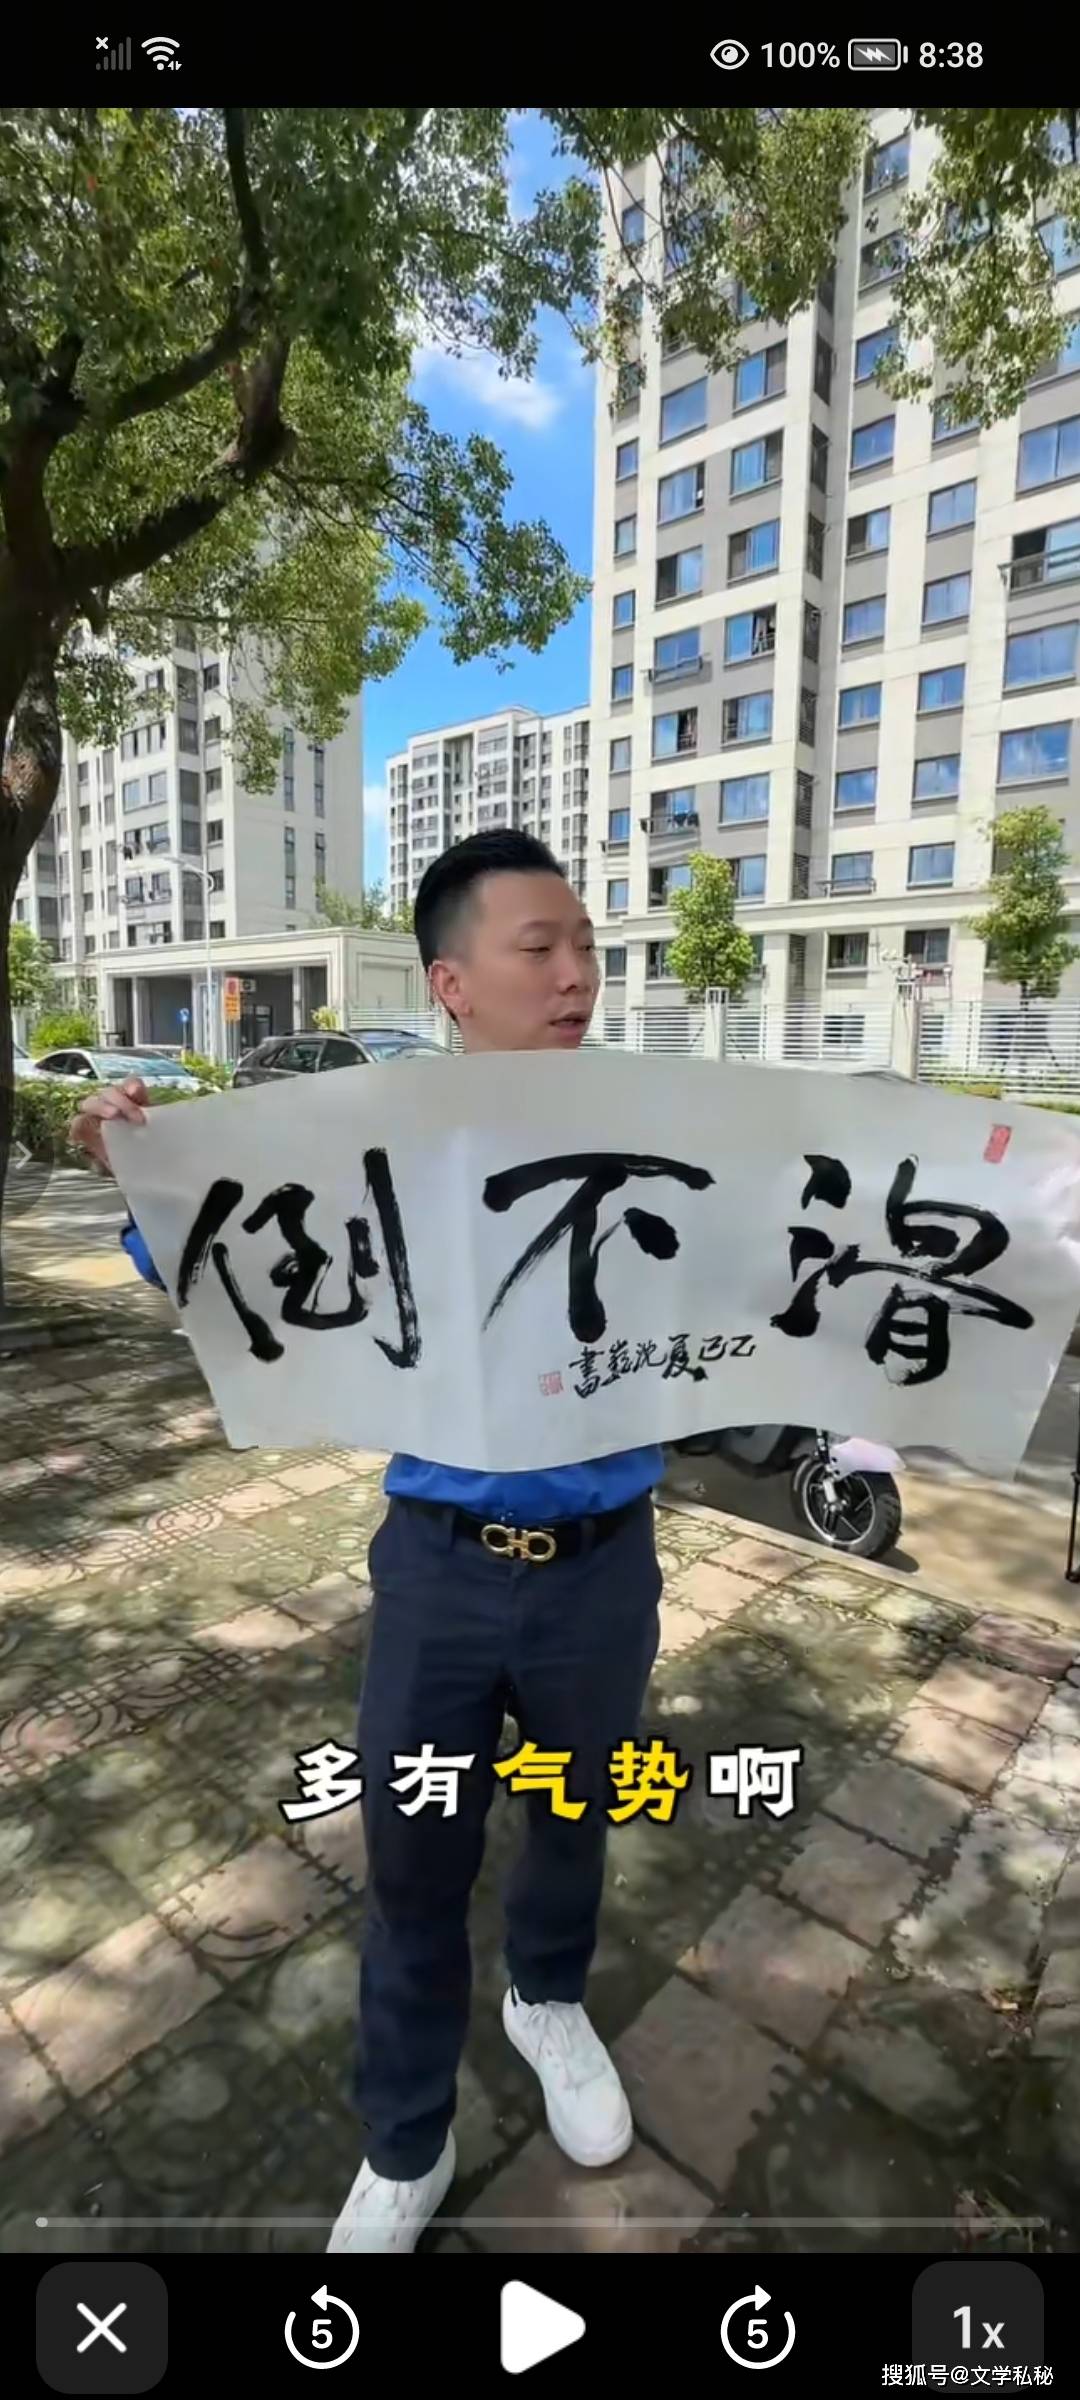 100% 8:38
滑不倒
乙巳夏沈巍書
多有气势啊
5 5 1x
搜狐号@文学私秘